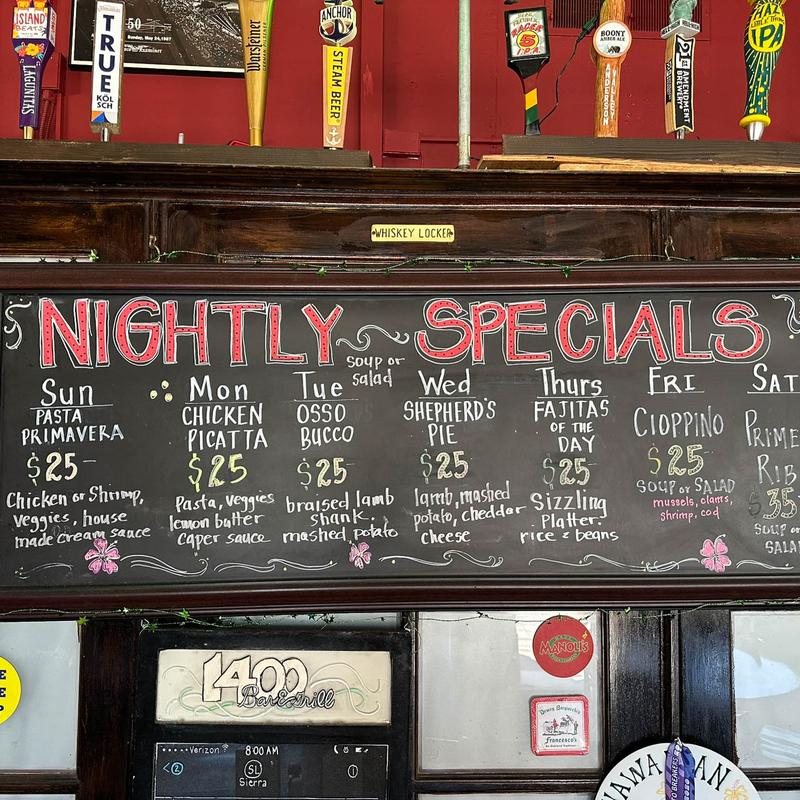 ISLAND
BEATS
LAGUNITAS
TRUE
KÖL
SCH
50
Sunday, May 24, 1987
Warsteiner
ANCHOR
STEAM BEER
BEAR REPUBLIC
RACER
5
IPA
BOONT
AMBER ALE
ANDERSON
VALLEY
21ST
AMENDMENT
BREWERY
IPA
WHISKEY LOCKER
NIGHTLY SPECIALS
soup or
salad
Sun
PASTA
PRIMAVERA
$25-
Chicken or Shrimp,
veggies, house
made cream sauce
Mon
CHICKEN
PICATTA
$25
Pasta, veggies
lemon butter
caper sauce
Tue
OSSO
BUCCO
$25
braised lamb
shank.
mashed potato
Wed
SHEPHERD'S
PIE
$25
lamb, mashed
potato, cheddar
cheese
Thurs
FAJITAS
OF THE
DAY
$25
Sizzling
Platter.
rice & beans
FRI
CIOPPINO
$25
SOUP or SALAD
mussels, clams,
shrimp, cod
SAT
PRIME
RIB
$35
SOUP or
SALAD
1400
Bar & Grill
Verizon 8:00 AM
<2 SL 1
Sierra
MANOLI'S
Francesco's